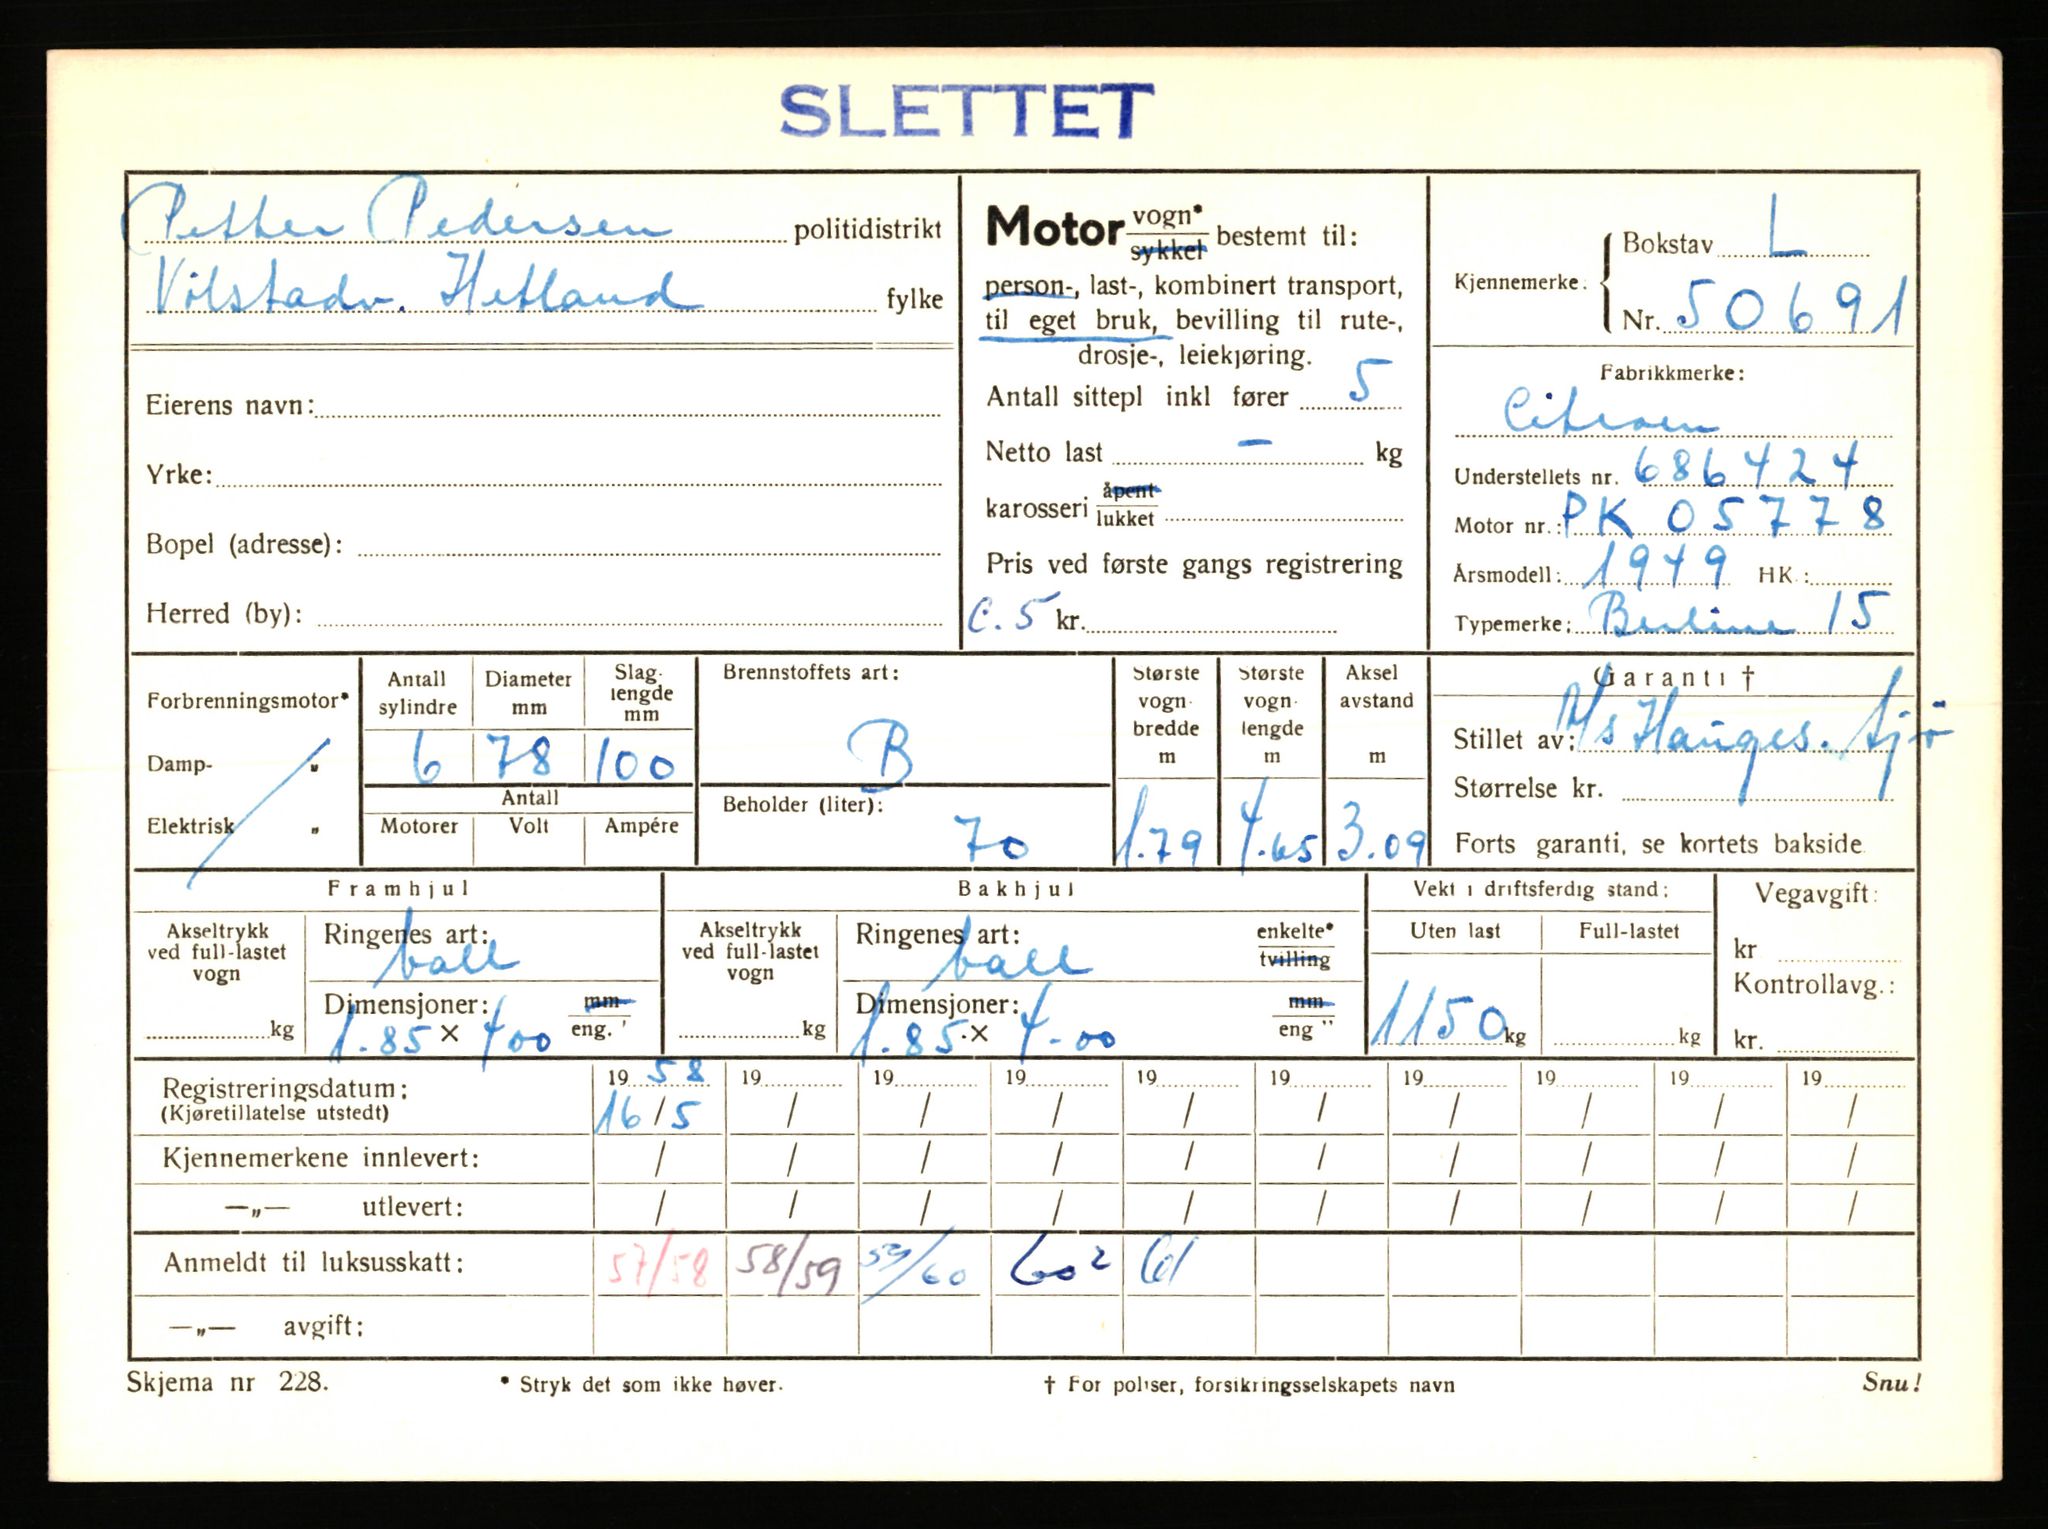 SLETTET
Petter Pedersen politidistrikt
Vålstadv. Hetland fylke
Eierens navn:
Yrke:
Bopel (adresse):
Herred (by):
Motor vogn* sykkel bestemt til:
person-, last-, kombinert transport,
til eget bruk, bevilling til rute-,
drosje-, leiekjøring.
Antall sittepl inkl fører 5
Netto last – kg
karosseri åpent lukket
Pris ved første gangs registrering
C. 5 kr.
Kjennemerke: Bokstav L
Nr. 50691
Fabrikkmerke:
Citroen
Understellets nr. 686424
Motor nr.: PK 05778
Årsmodell: 1949 HK.:
Typemerke: Berline 15
Forbrenningsmotor*
Damp- „
Elektrisk „
Antall sylindre
Diameter mm
Slag-lengde mm
6 78 100
Antall
Motorer Volt Ampére
Brennstoffets art:
B
Beholder (liter):
70
Største vogn-bredde m
1.79
Største vogn-lengde m
4.65
Aksel avstand m
3.09
Garanti †
Stillet av: A/s Hauges. Sjø
Størrelse kr.
Forts garanti, se kortets bakside
Framhjul
Akseltrykk ved full-lastet vogn
kg
Ringenes art:
ball
Dimensjoner: mm
1.85 × 400 eng. "
Bakhjul
Akseltrykk ved full-lastet vogn
kg
Ringenes art: enkelte*
ball tvilling
Dimensjoner: mm
1.85.× 4.00 eng "
Vekt i driftsferdig stand:
Uten last Full-lastet
1150 kg kg
Vegavgift:
kr
Kontrollavg.:
kr.
Registreringsdatum: 19 58 19 19 19 19 19 19 19 19 19
(Kjøretillatelse utstedt) 16/5 / / / / / / / / /
Kjennemerkene innlevert: / / / / / / / / / /
—„— utlevert: / / / / / / / / / /
Anmeldt til luksusskatt: 57/58 58/59 59/60 60² 61
—„— avgift:
Skjema nr 228. * Stryk det som ikke høver. † For poliser, forsikringsselskapets navn Snu!